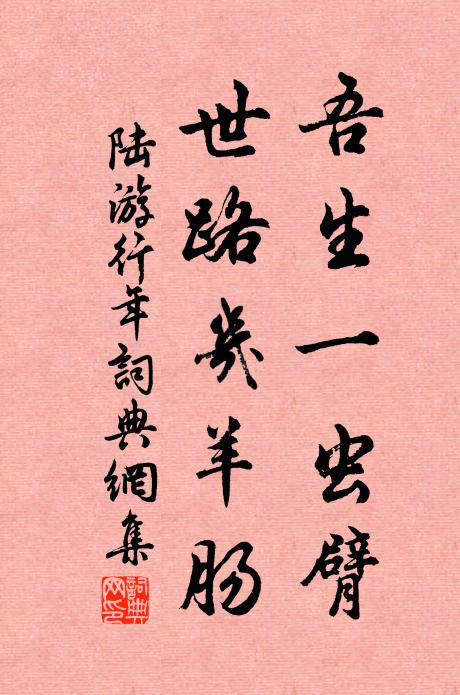 吾生一虫臂
世路幾羊肠
陆游行年詞典網集
詞典网印